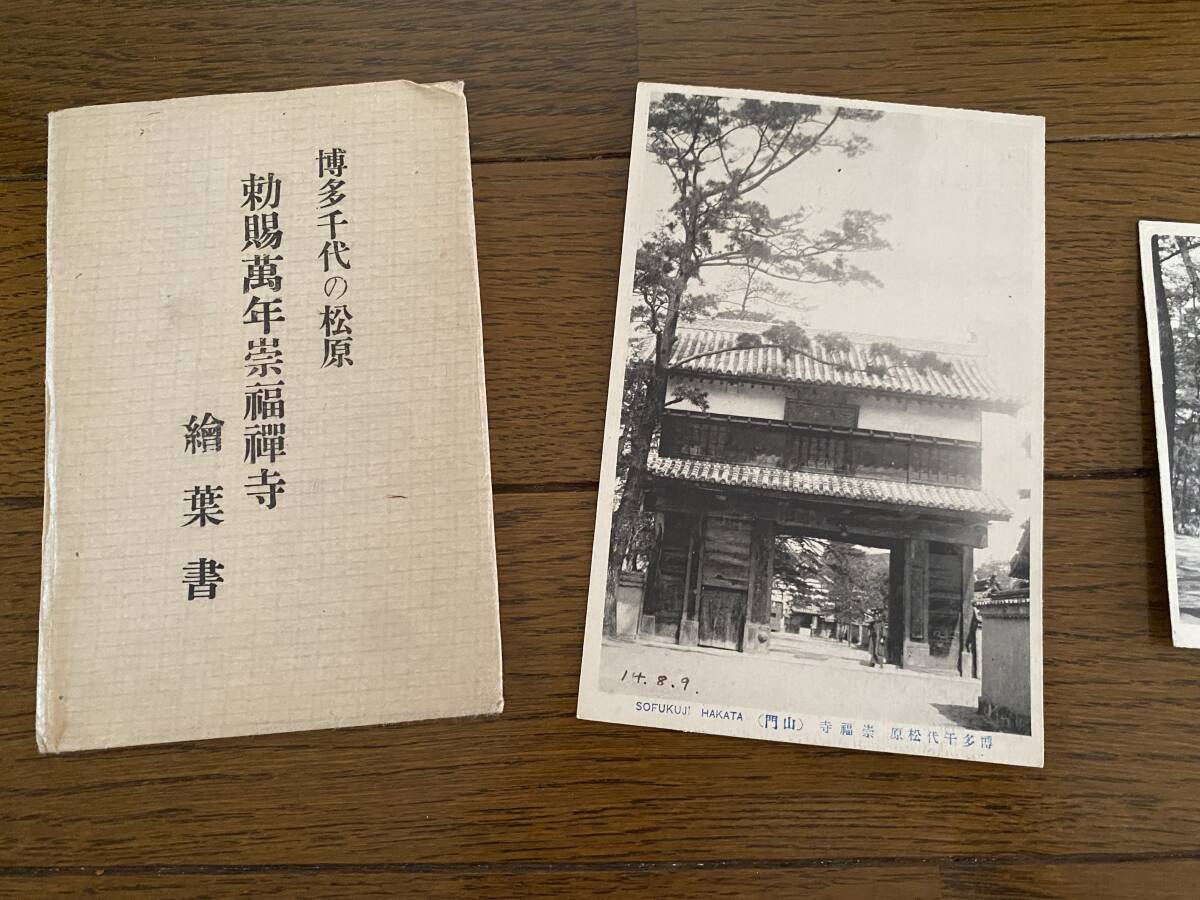 博多千代の松原
勅賜萬年崇福禪寺
繪葉書
14.8.9.
SOFUKUJI HAKATA （門山） 寺福崇 原松代千多博